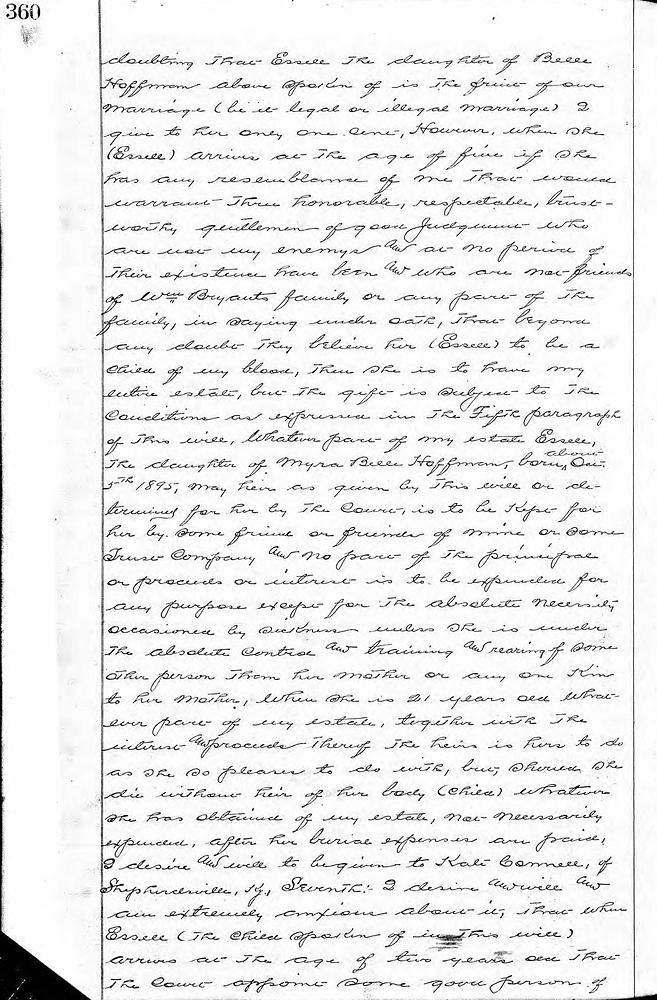 360
doubting that Essell the daughter of Belle
Hoffman above spoken of is the fruit of our
marriage (be it legal or illegal marriage) I
give to her only one cent, However, when she
(Essell) arrives at the age of five if she
has any resemblance of me that would
warrant three honorable, respectable, trust-
worthy gentlemen of good Judgment who
are not my enemys and at no period of
their existence have been and who are not friends
of Wm Bryants family or any part of the
family, in saying under oath, that beyond
any doubt they believe her (Essell) to be a
child of my blood, then she is to have my
entire estate, but the gift is subject to the
Conditions as expressed in the Fifth paragraph
of this will, Whatever part of my estate Essell,
the daughter of Myra Belle Hoffman, born, about Oct.
5th 1895, may heir as given by this will or de-
termined for her by the Court, is to be kept for
her by some friend or friends of mine or some
Trust Company and no part of the principal
or proceeds or interest is to be expended for
any purpose except for the absolute necessity
occasioned by sickness unless she is under
the absolute control and training and rearing of some
other person than her mother or any one Kin
to her mother, When she is 21 years old what-
ever part of my estate, together with the
interest and proceeds thereof she heirs is hers to do
as she so pleases to do with, but, should she
die without heir of her body (child) whatever
she has obtained of my estate, not necessarily
expended, after her burial expenses are paid,
I desire and will to be given to Kate Connell, of
Shepherdsville, Ky, Seventh:- I desire and will and
am extremely anxious about it, that when
Essell (the child spoken of in this will)
arrives at the age of two years old that
the Court appoint some good person of